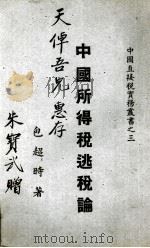 中國直接稅實務叢書之三
中國所得稅逃稅論
包超時著
天俾吾兄惠存
朱寶武贈